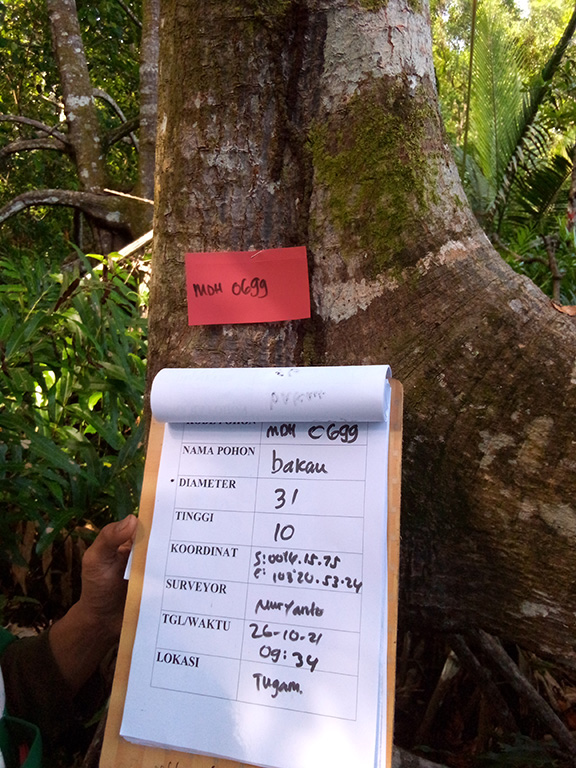 MDH 0699
MDH 0699
NAMA POHON bakau
DIAMETER 31
TINGGI 10
KOORDINAT S:0014.15.75
E: 103°20.53.24
SURVEYOR Nuryanto
TGL/WAKTU 26-10-21
09:34
LOKASI Tugam.